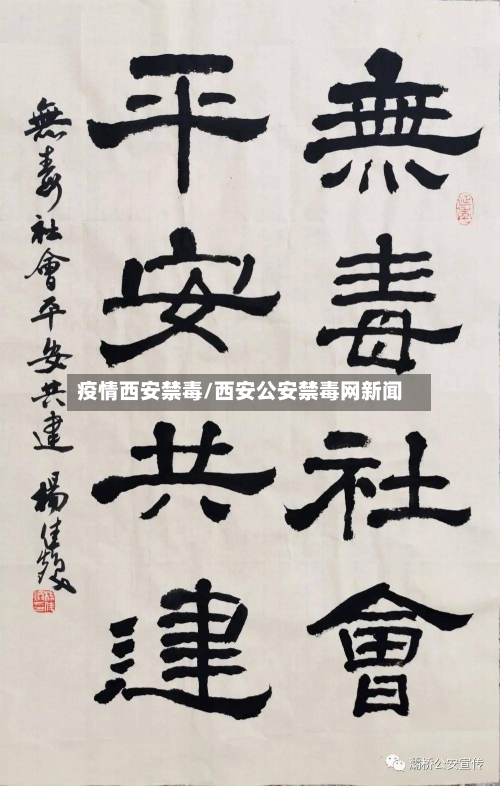 無毒社會
平安共建
無毒社會平安共建 楊佳
疫情西安禁毒/西安公安禁毒网新闻
灞桥公安宣传